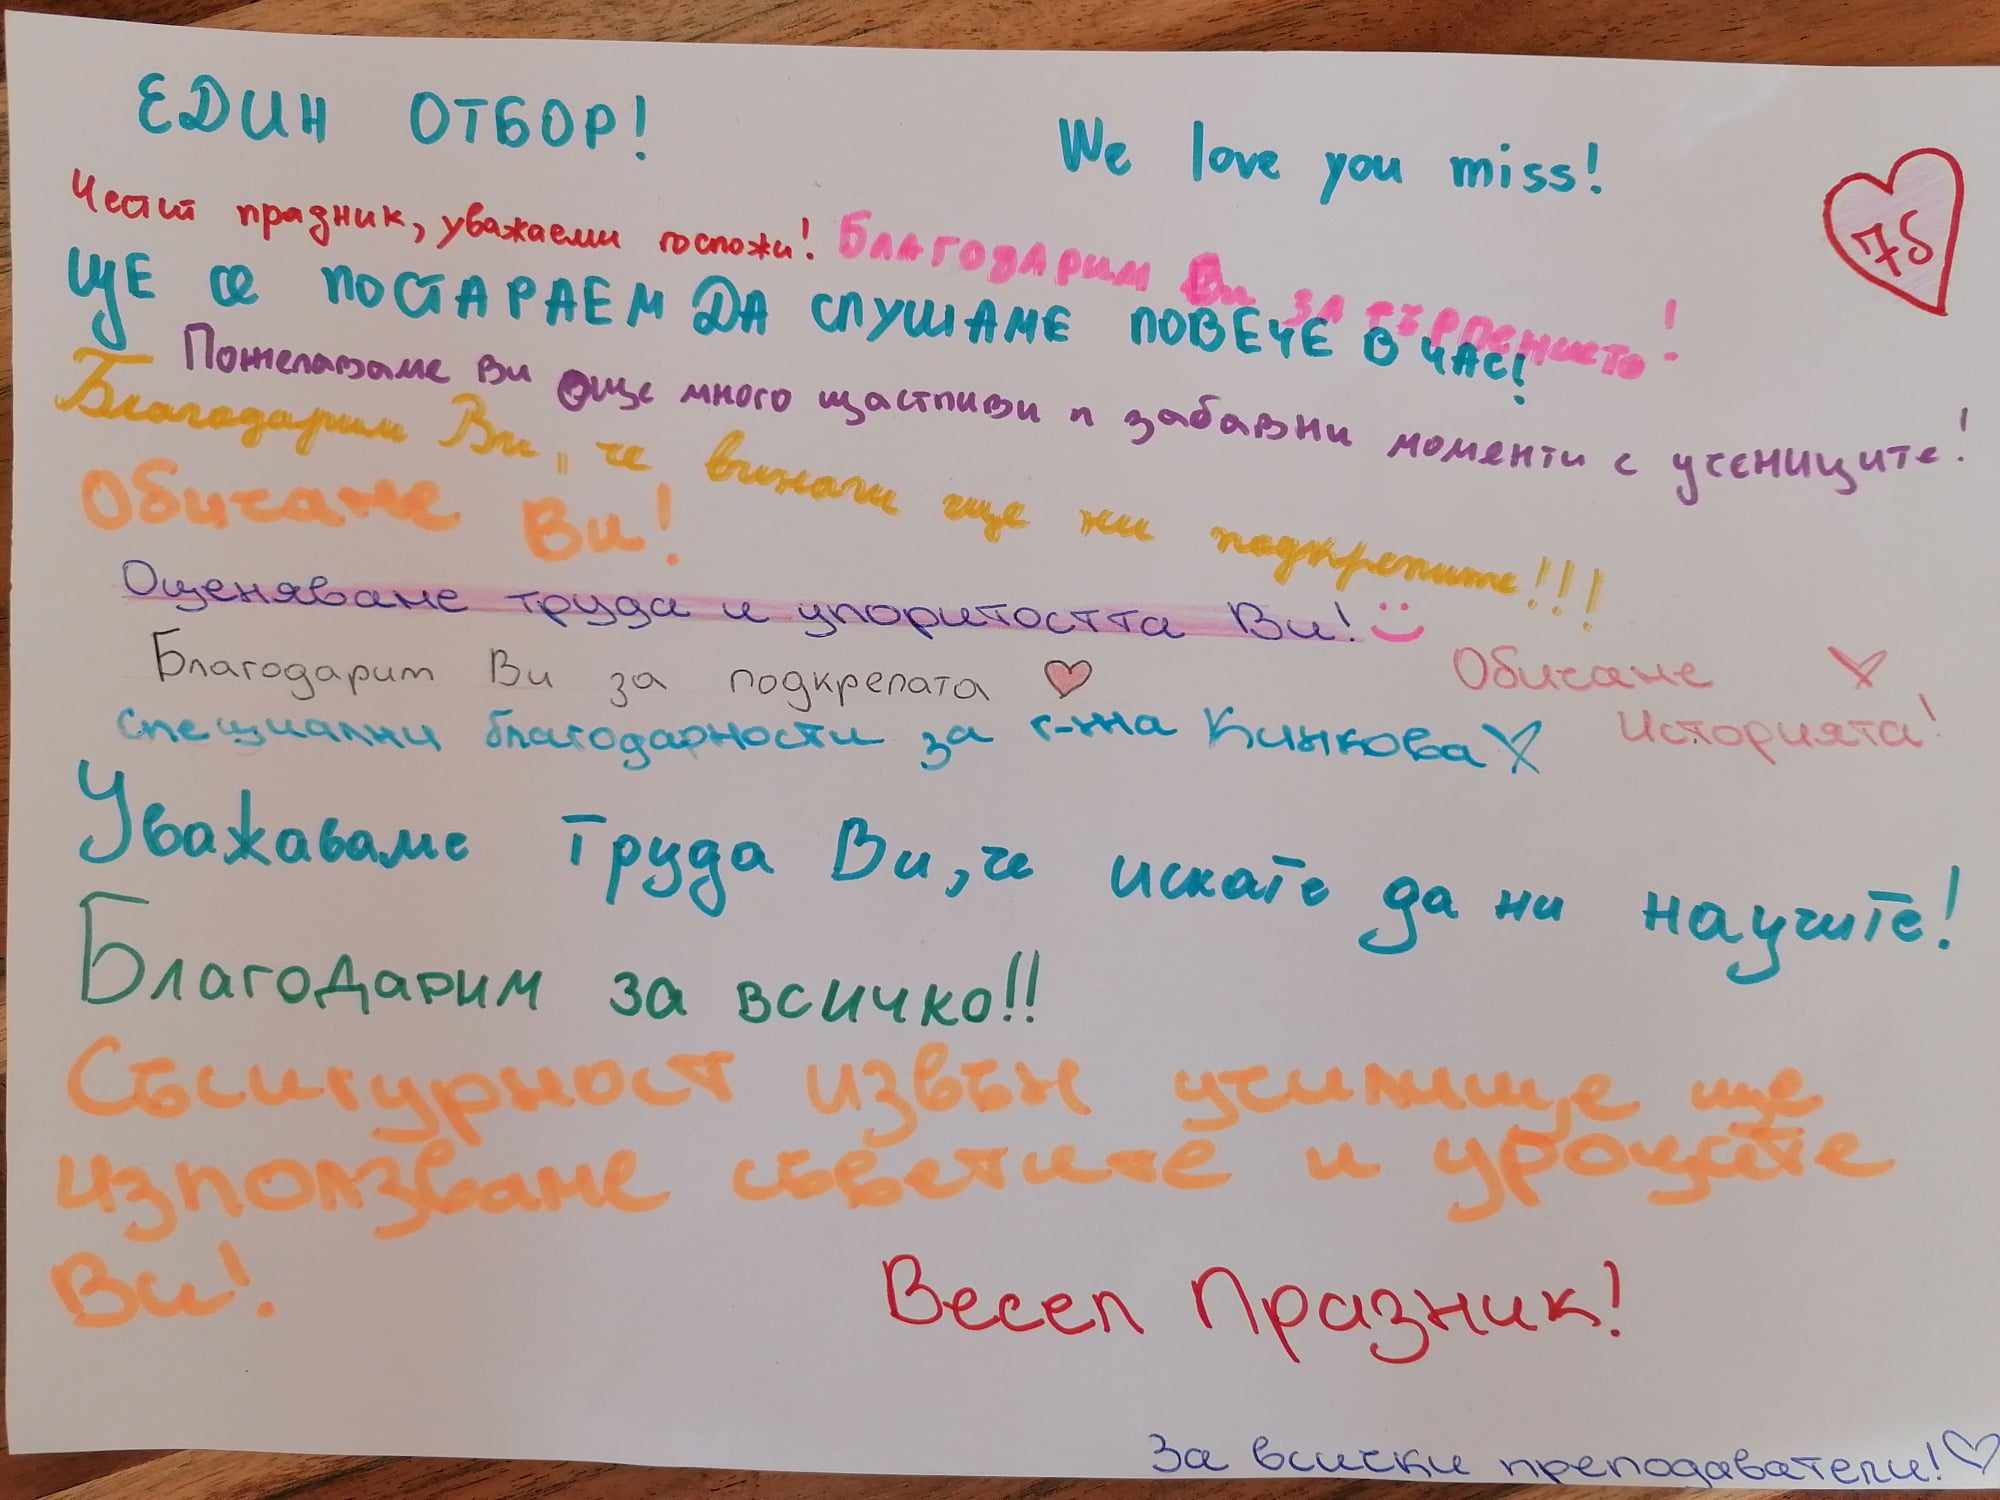 ЕДИН ОТБОР!
We love you miss!
75
Честит празник, уважаеми госпожи!
Благодарим Ви за търпението!
ЩЕ СЕ ПОСТАРАЕМ ДА СЛУШАМЕ ПОВЕЧЕ В ЧАС!
Пожелаваме Ви още много щастливи и забавни моменти с учениците!
Благодарим Ви, че винаги ще ни подкрепите!!!
Обичаме Ви!
Оценяваме труда и упоритостта Ви!
Благодарим Ви за подкрепата
Обичаме
Историята!
специални благодарности за г-жа Кинкова
Уважаваме труда Ви, че искате да ни научите!
Благодарим за всичко!!
Със сигурност извън училище ще
използваме съветите и уроците
Ви!
Весел Празник!
За всички преподаватели!